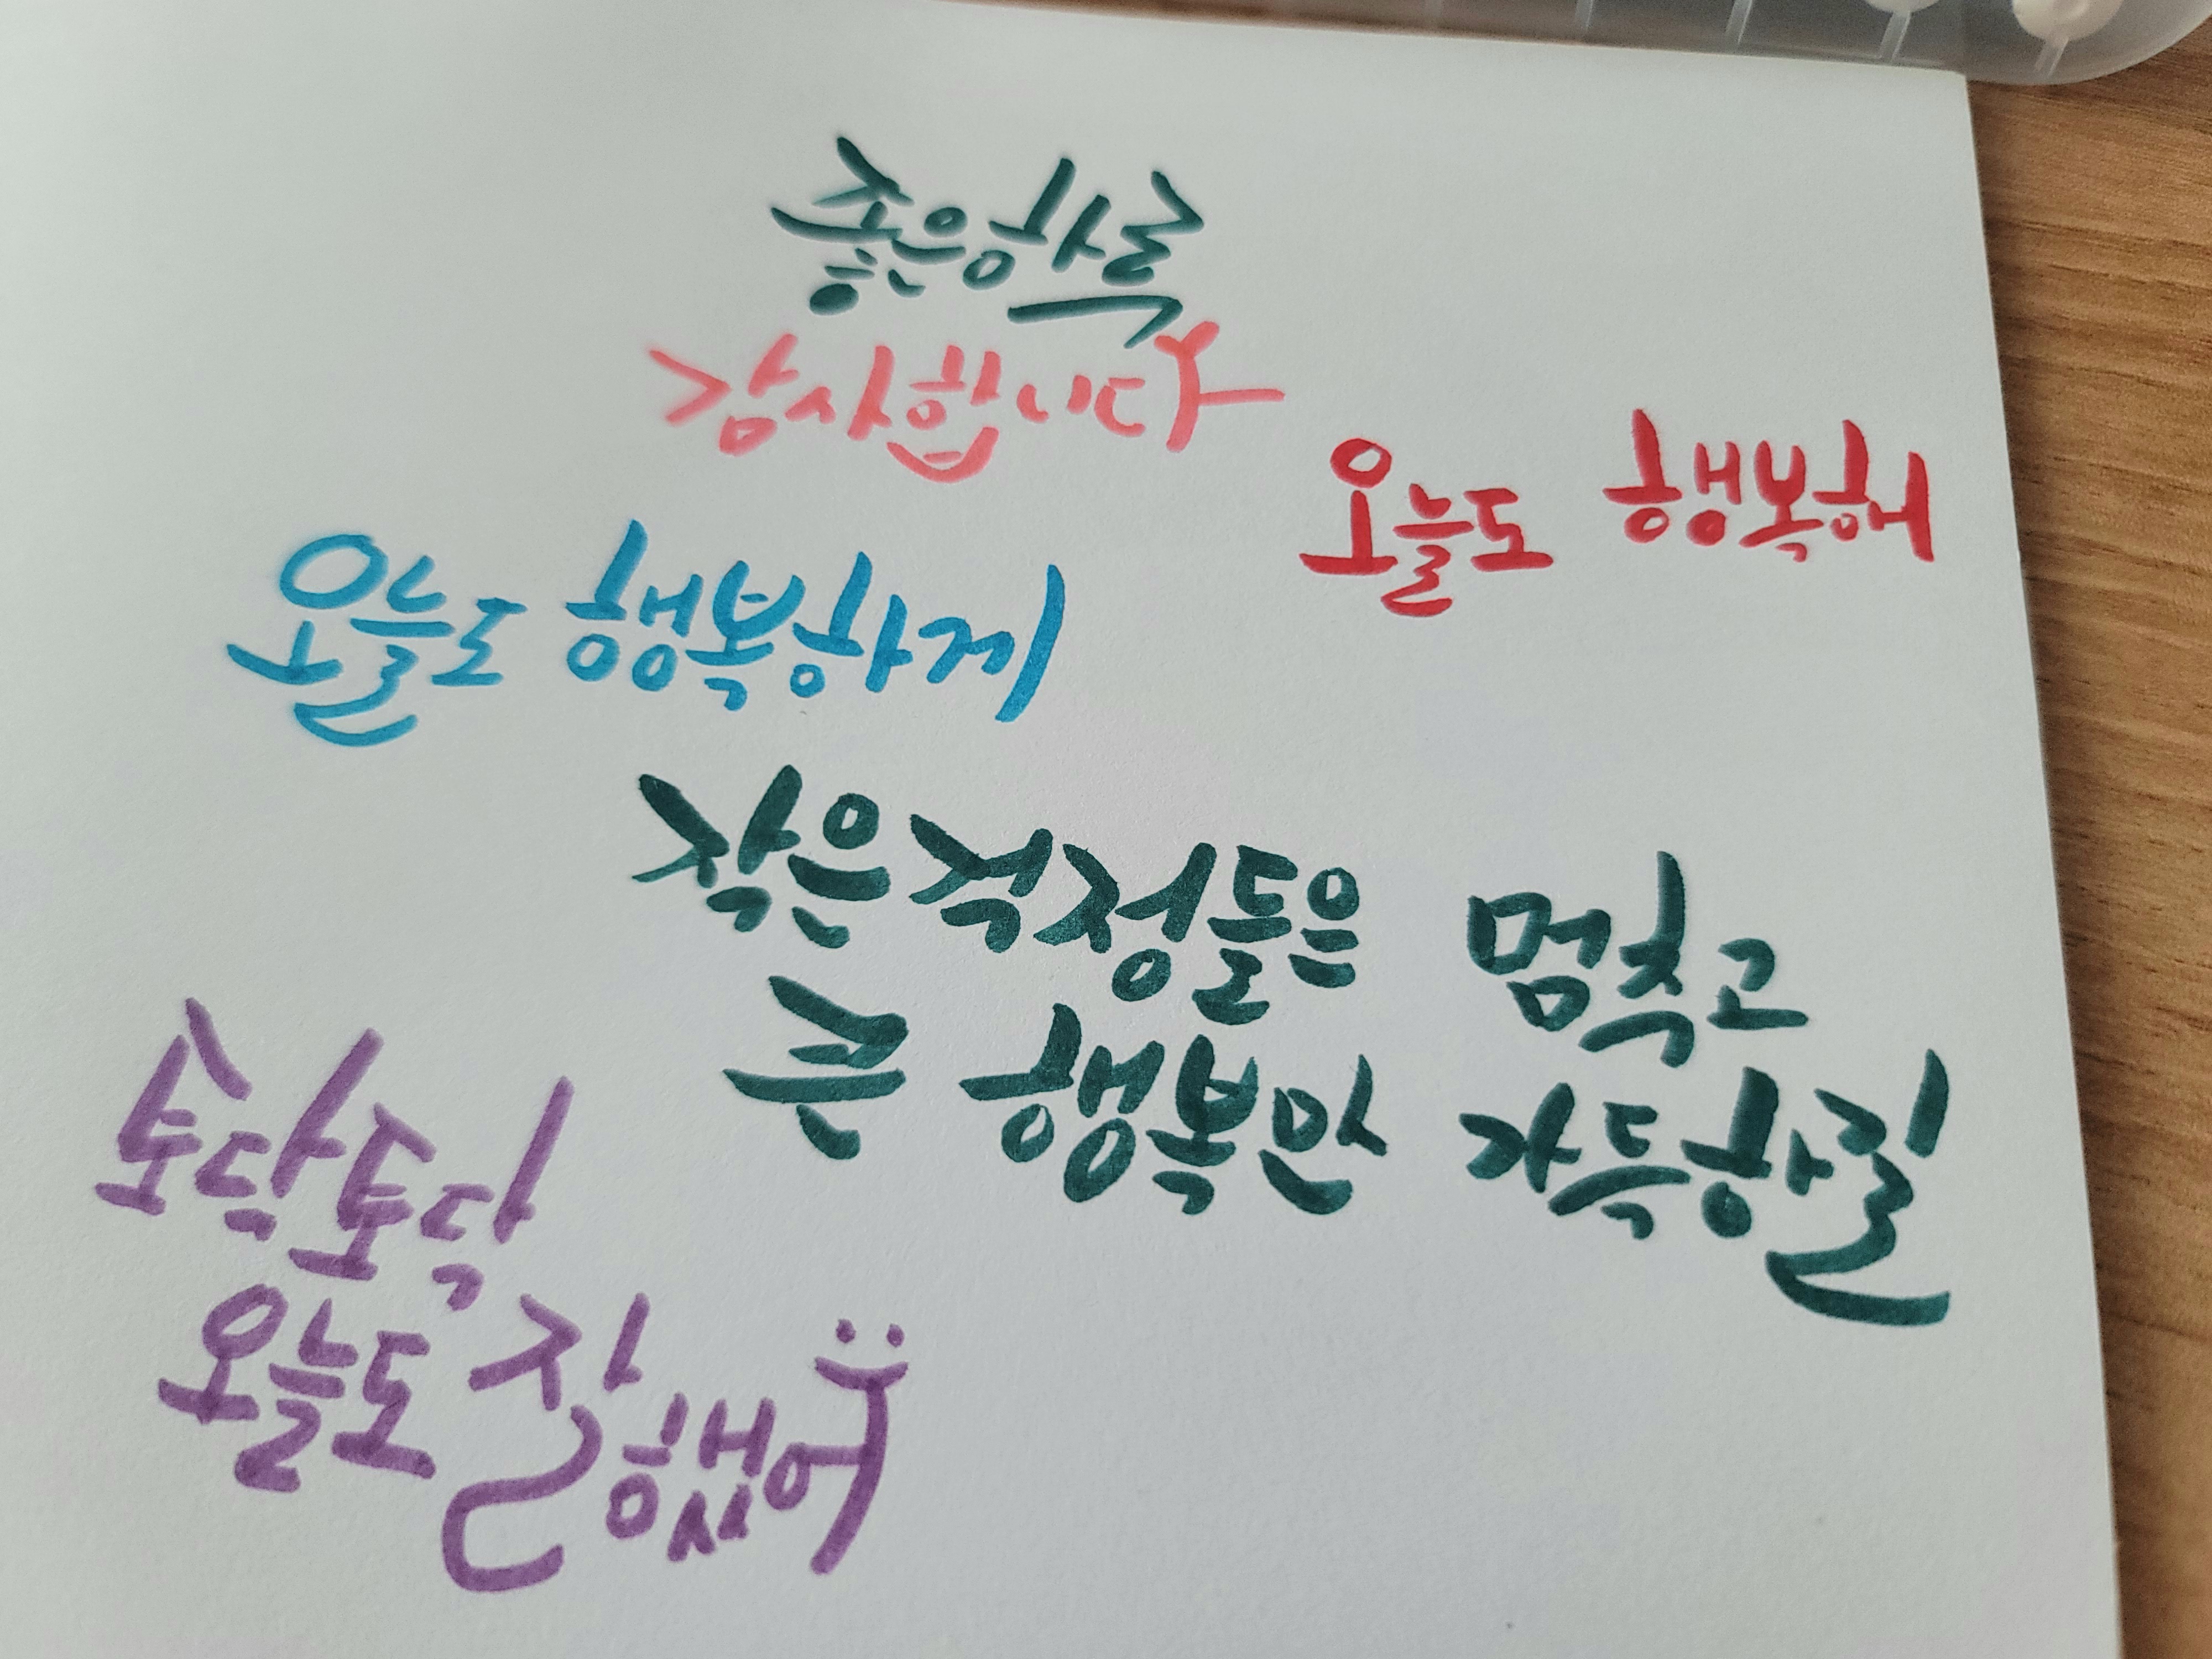 좋은하루
감사합니다
오늘도 행복해
오늘도 행복하게
작은걱정들은 멈추고
큰 행복만 가득하길
토닥토닥
오늘도 잘했어